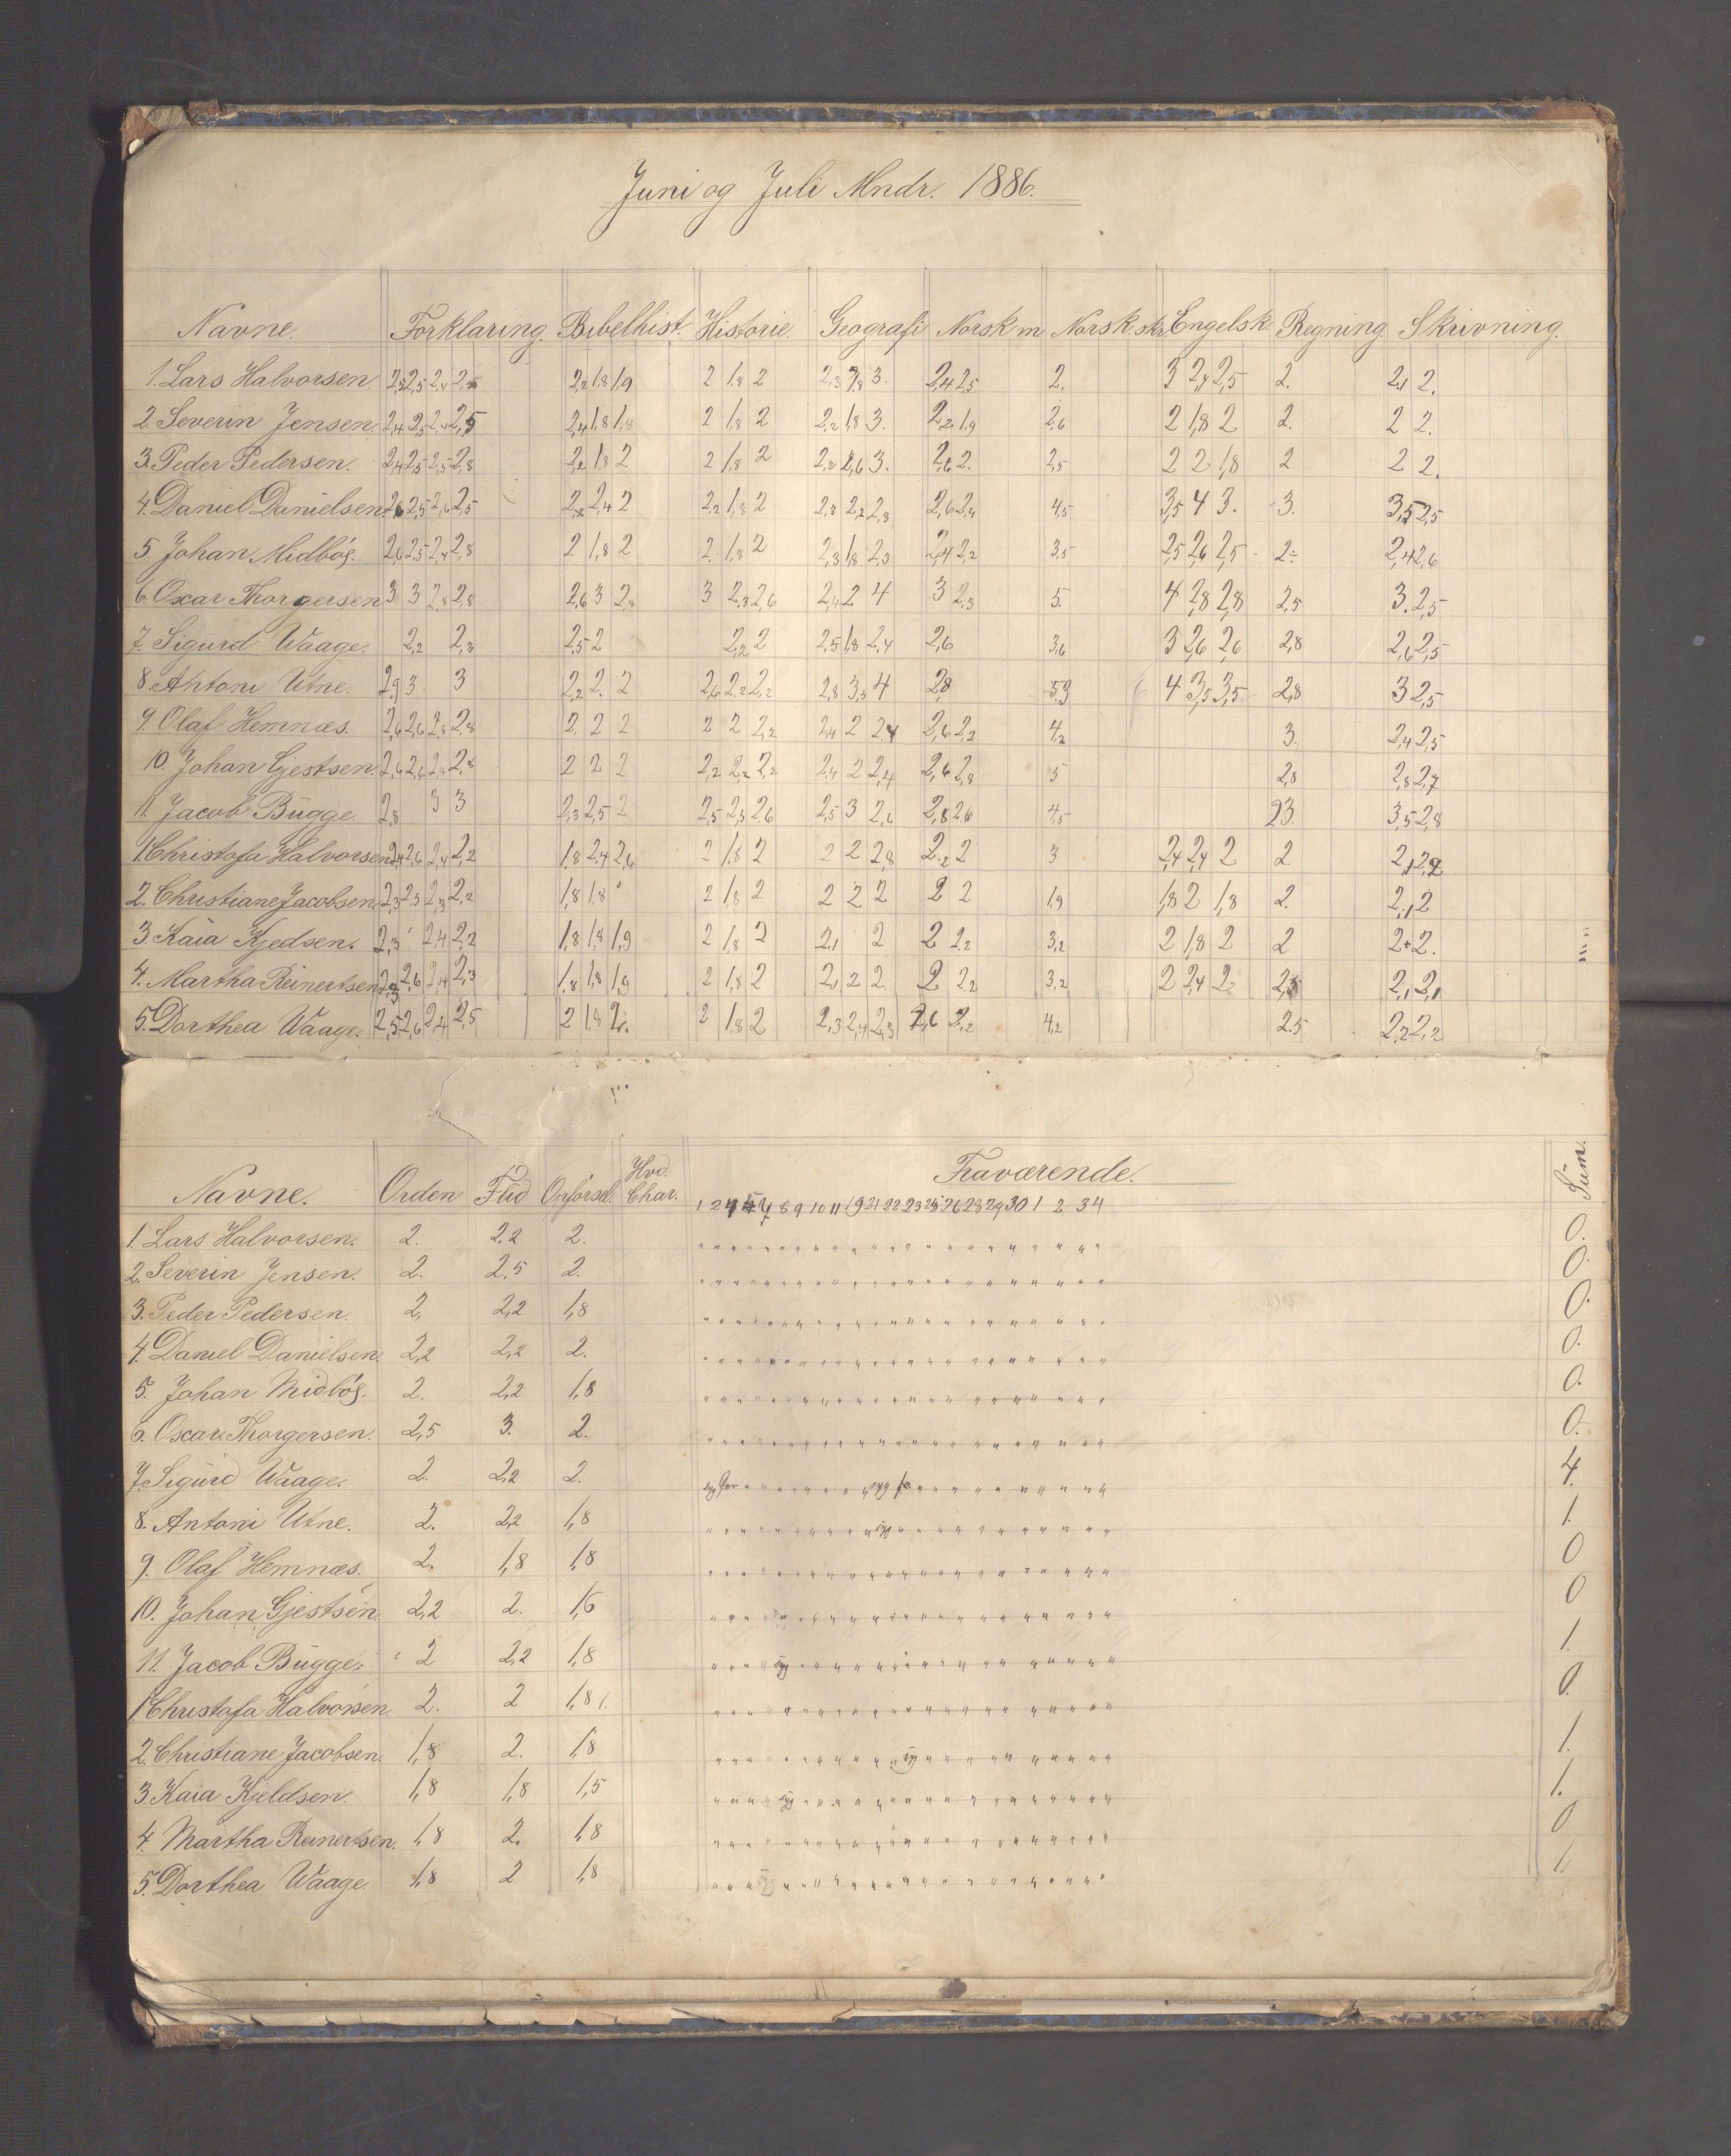 Juni og Juli Mndr. 1886.
Navne. Forklaring. Bibelhist. Historie. Geografi Norsk m Norsk skr. Engelsk. Regning. Skrivning.
1. Lars Halvorsen 2,5 2,5 2,4 2,2 1,8 1,9 2 1,8 2 2,3 3. 2,4 2,5 2. 3 2,4 2,5 2. 2,1 2.
2. Severin Jensen. 2,4 2,5 2,5 2,4 1,8 1,8 2 1,8 2 2,2 1,8 3. 2,2 1,9 2,6 2 1,8 2 2. 2 2.
3. Peder Pedersen. 2,4 2,5 2,5 2,8 2,2 1,8 2 2 1,8 2 2,2 3. 2. 2,5 2 2 1,8 2 2 2.
4. Daniel Danielsen. 2,6 2,5 2,6 2,5 2,4 2 2,2 1,8 2 2,3 2,2 2,3 2,6 2,4 4,5 3,5 4 3. 3. 3,5 2,5
5. Johan Midbøg. 2,6 2,5 2,4 2,8 2 1,8 2 2. 1,8 2 2,3 1,8 2,3 2,4 2,2 3,5 2,5 2,6 2,5 2 2,4 2,6
6. Oscar Thorgersen 3 3 2,8 2,8 2,6 3 2,8 3 2,3 2,6 2,4 2 4 3 2,3 5. 4 2,8 2,8 2,5 3. 2,5
7. Sigurd Waage. 2,2 2,3 2,5 2 2,2 2 2,5 1,8 2,4 2,6 3,6 3 2,6 2,6 2,8 2,6 2,5
8. Antoni Utne. 2,9 3 3 2,2 2. 2 2,6 2,2 2,2 2,8 3,5 4 2,8 4 3,5 3,5 2,8 3 2,5
9. Olaf Hemnæs. 2,6 2,6 2,8 2,8 2. 2 2 2 2 2,2 2,4 2 2,4 2,6 2,2 4,2 3. 2,4 2,5
10. Johan Gjestsen. 2,6 2,6 2,8 2 2 2 2,2 2,2 2,2 2,4 2 2,4 2,6 2,8 5 2,8 2,8 2,7
11. Jacob Bugge. 2,8 3 3 2,3 2,5 2 2,5 2,3 2,6 2,5 3 2,6 2,8 2,6 4,5 2,3 3,5 2,8
1. Christofa Halvorsen 2,4 2,6 2,4 2,2 1,8 2,4 2,6 2 1,8 2 2 2 2,8 2,2 2 3 2,4 2,4 2 2 2,1
2. Christiane Jacobsen 2,3 2,3 2,3 2,2 1,8 1,8 2 1,8 2 2 2 2 2 2 1,9 1,8 2 1,8 2. 2,1 2
3 Kaia Kjedsen. 2,3 2,4 2,2 1,8 1,8 1,9 2 1,8 2 2,1 2 2 2,2 3,2 2 1,8 2 2 2.
4. Martha Reinertsen 2,6 2,4 2,3 1,8 1,8 1,9 2 1,8 2 2,1 2 2 2 2,2 3,2 2 2,4 2 2,1 2,1
5. Dorthea Waage. 2,5 2,6 2,4 2,5 2 1,8 2 1,8 2 2,3 2,4 2,3 2,6 2,2 4,2 2.5 2,2 2,2
Navne. Orden Flid Opförsel. Hvd. Char. Fraværende. Sum.
1 2 8 9 10 11 19 21 22 23 25 26 28 29 30 1 2 3 4
1. Lars Halvorsen. 2. 2,2 2. 0.
2. Severin Jensen. 2. 2,5 2. 0.
3. Peder Pedersen. 2, 2,2 1,8 0.
4. Daniel Danielsen. 2,2 2,2 2. 0.
5. Johan Midbøg. 2. 2,2 1,8 0.
6. Oscar Thorgersen. 2,5 3. 2. 0.
7. Sigurd Waage. 2. 2,2 2. syg syg 4.
8. Antoni Utne. 2. 2,2 1,8 syg 1.
9. Olaf Hemnæs. 2. 1,8 1,8 0
10. Johan Gjestsen 2,2 2. 1,6 0
11. Jacob Bugge. 2 2,2 1,8 syg 1.
1. Christofa Halvorsen. 2. 2 1,8 0.
2. Christiane Jacobsen. 1,8 2. 1,8 syg 1.
3. Kaia Kjeldsen. 1,8 1,8 1,5 syg 1.
4. Martha Reinertsen. 1,8 2. 1,8 0
5. Dorthea Waage. 1,8 2 1,8 syg 1.